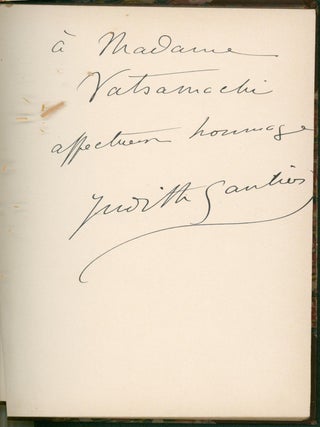 à Madame
Yatsamachi
affectueux hommage
Judith Gautier